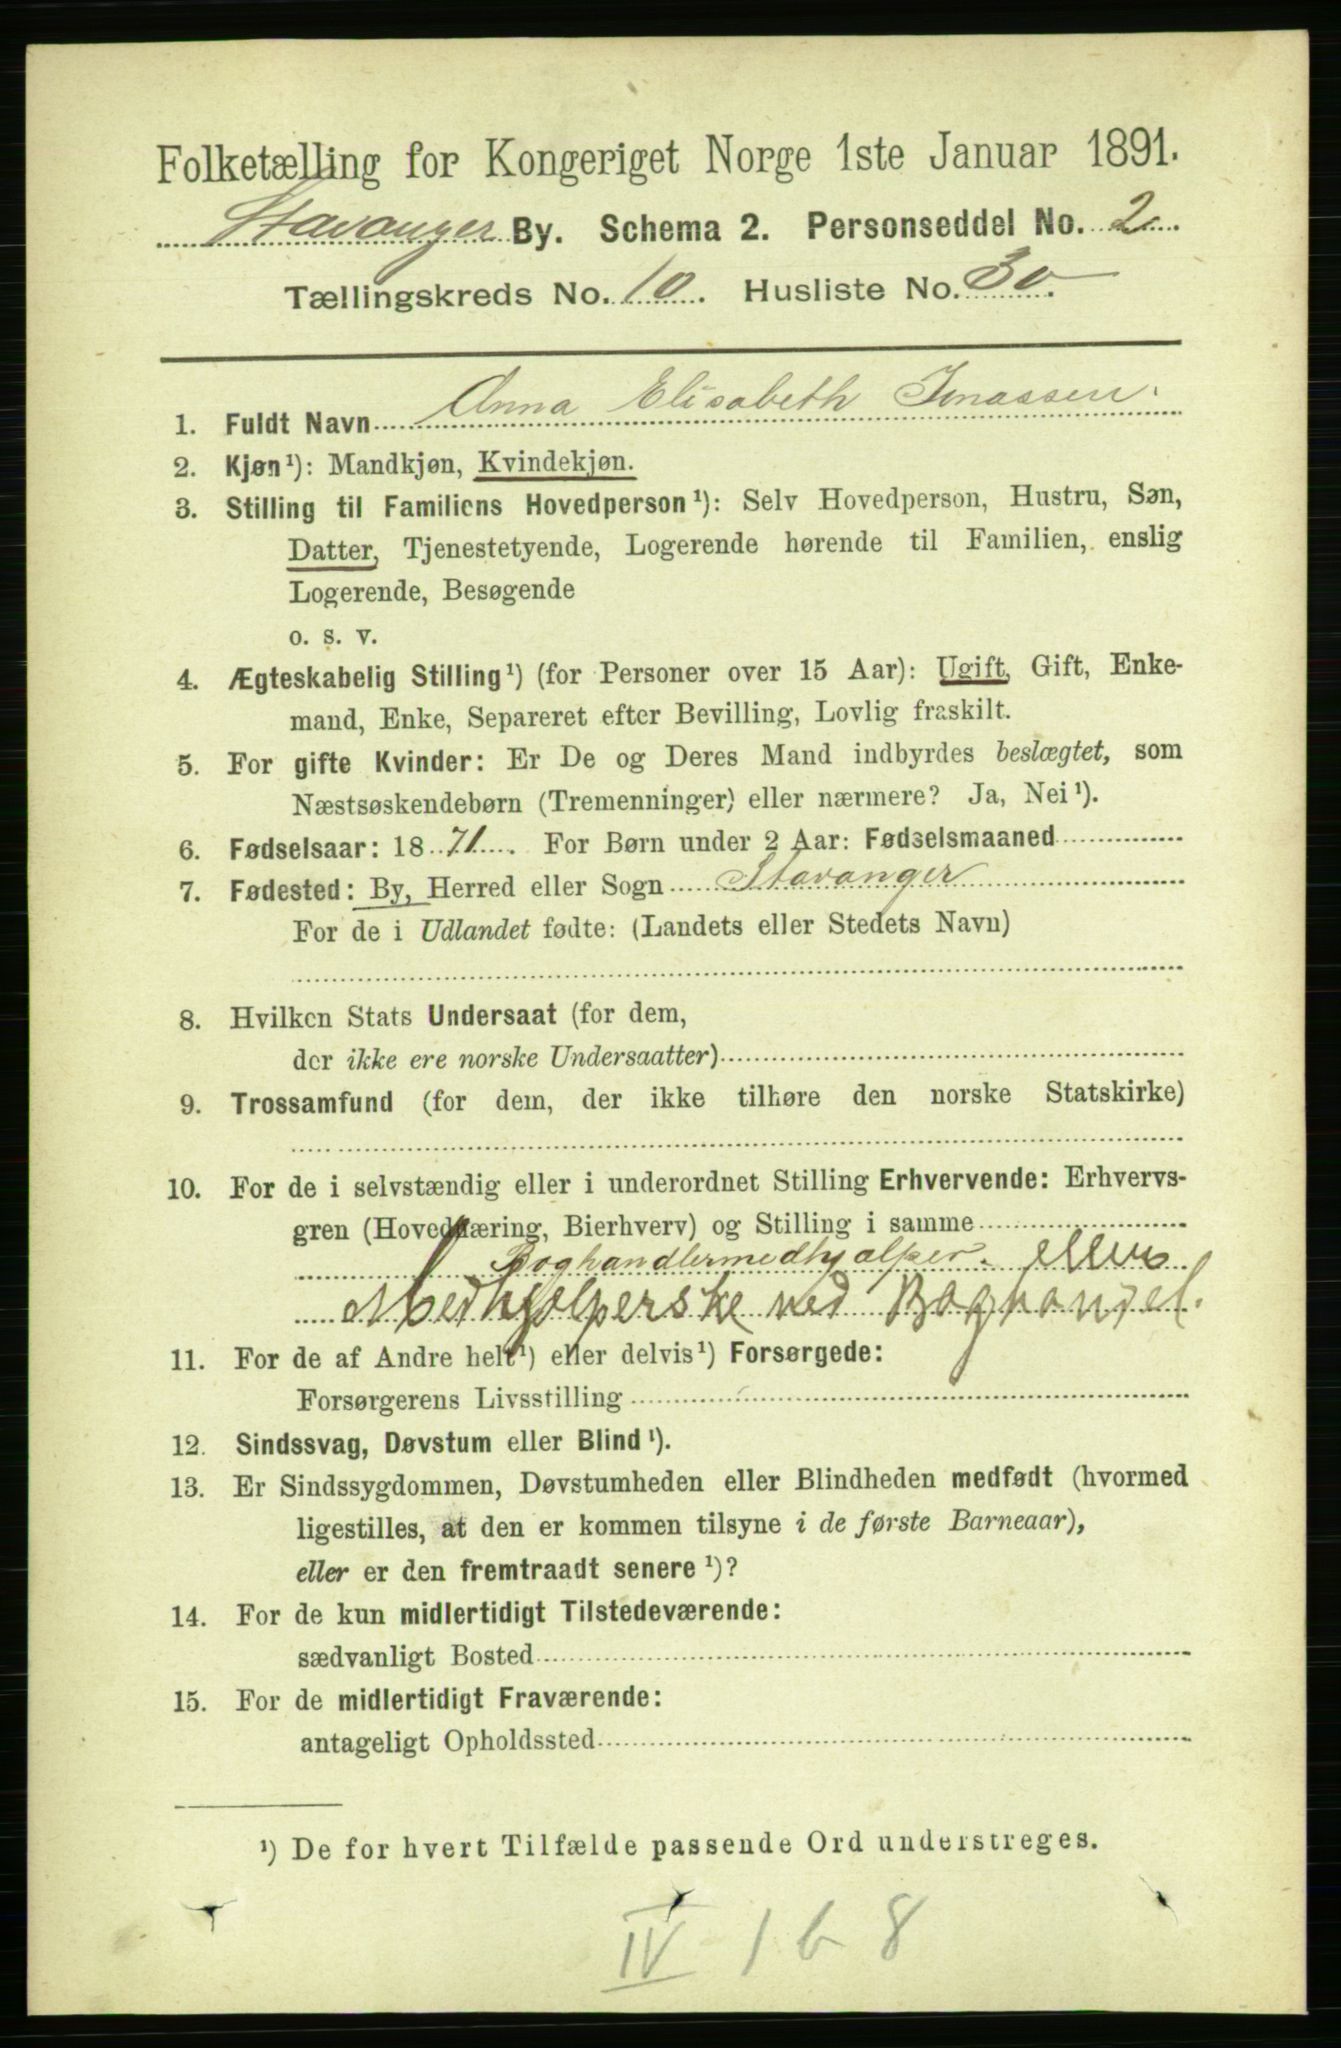 Folketælling for Kongeriget Norge 1ste Januar 1891.
Stavanger By. Schema 2. Personseddel No. 2
Tællingskreds No. 10. Husliste No. 30.
1. Fuldt Navn Anna Elisabeth Jonassen.
2. Kjøn¹): Mandkjøn, Kvindekjøn.
3. Stilling til Familiens Hovedperson¹): Selv Hovedperson, Hustru, Søn,
Datter, Tjenestetyende, Logerende hørende til Familien, enslig
Logerende, Besøgende
o. s. v.
4. Ægteskabelig Stilling¹) (for Personer over 15 Aar): Ugift, Gift, Enke-
mand, Enke, Separeret efter Bevilling, Lovlig fraskilt.
5. For gifte Kvinder: Er De og Deres Mand indbyrdes beslægtet, som
Næstsøskendebørn (Tremenninger) eller nærmere? Ja, Nei¹).
6. Fødselsaar: 1871. For Børn under 2 Aar: Fødselsmaaned
7. Fødested: By, Herred eller Sogn Stavanger
For de i Udlandet fødte: (Landets eller Stedets Navn)
8. Hvilken Stats Undersaat (for dem,
der ikke ere norske Undersaatter)
9. Trossamfund (for dem, der ikke tilhøre den norske Statskirke)
10. For de i selvstændig eller i underordnet Stilling Erhvervende: Erhvervs-
gren (Hovednæring, Bierhverv) og Stilling i samme
Boghandlermedhjælper. eller
Medhjælperske ved Boghandel.
11. For de af Andre helt¹) eller delvis¹) Forsørgede:
Forsørgerens Livsstilling
12. Sindssvag, Døvstum eller Blind¹).
13. Er Sindssygdommen, Døvstumheden eller Blindheden medfødt (hvormed
ligestilles, at den er kommen tilsyne i de første Barneaar),
eller er den fremtraadt senere¹)?
14. For de kun midlertidigt Tilstedeværende:
sædvanligt Bosted
15. For de midlertidigt Fraværende:
antageligt Opholdssted
¹) De for hvert Tilfælde passende Ord understreges.
IV 1 b 8